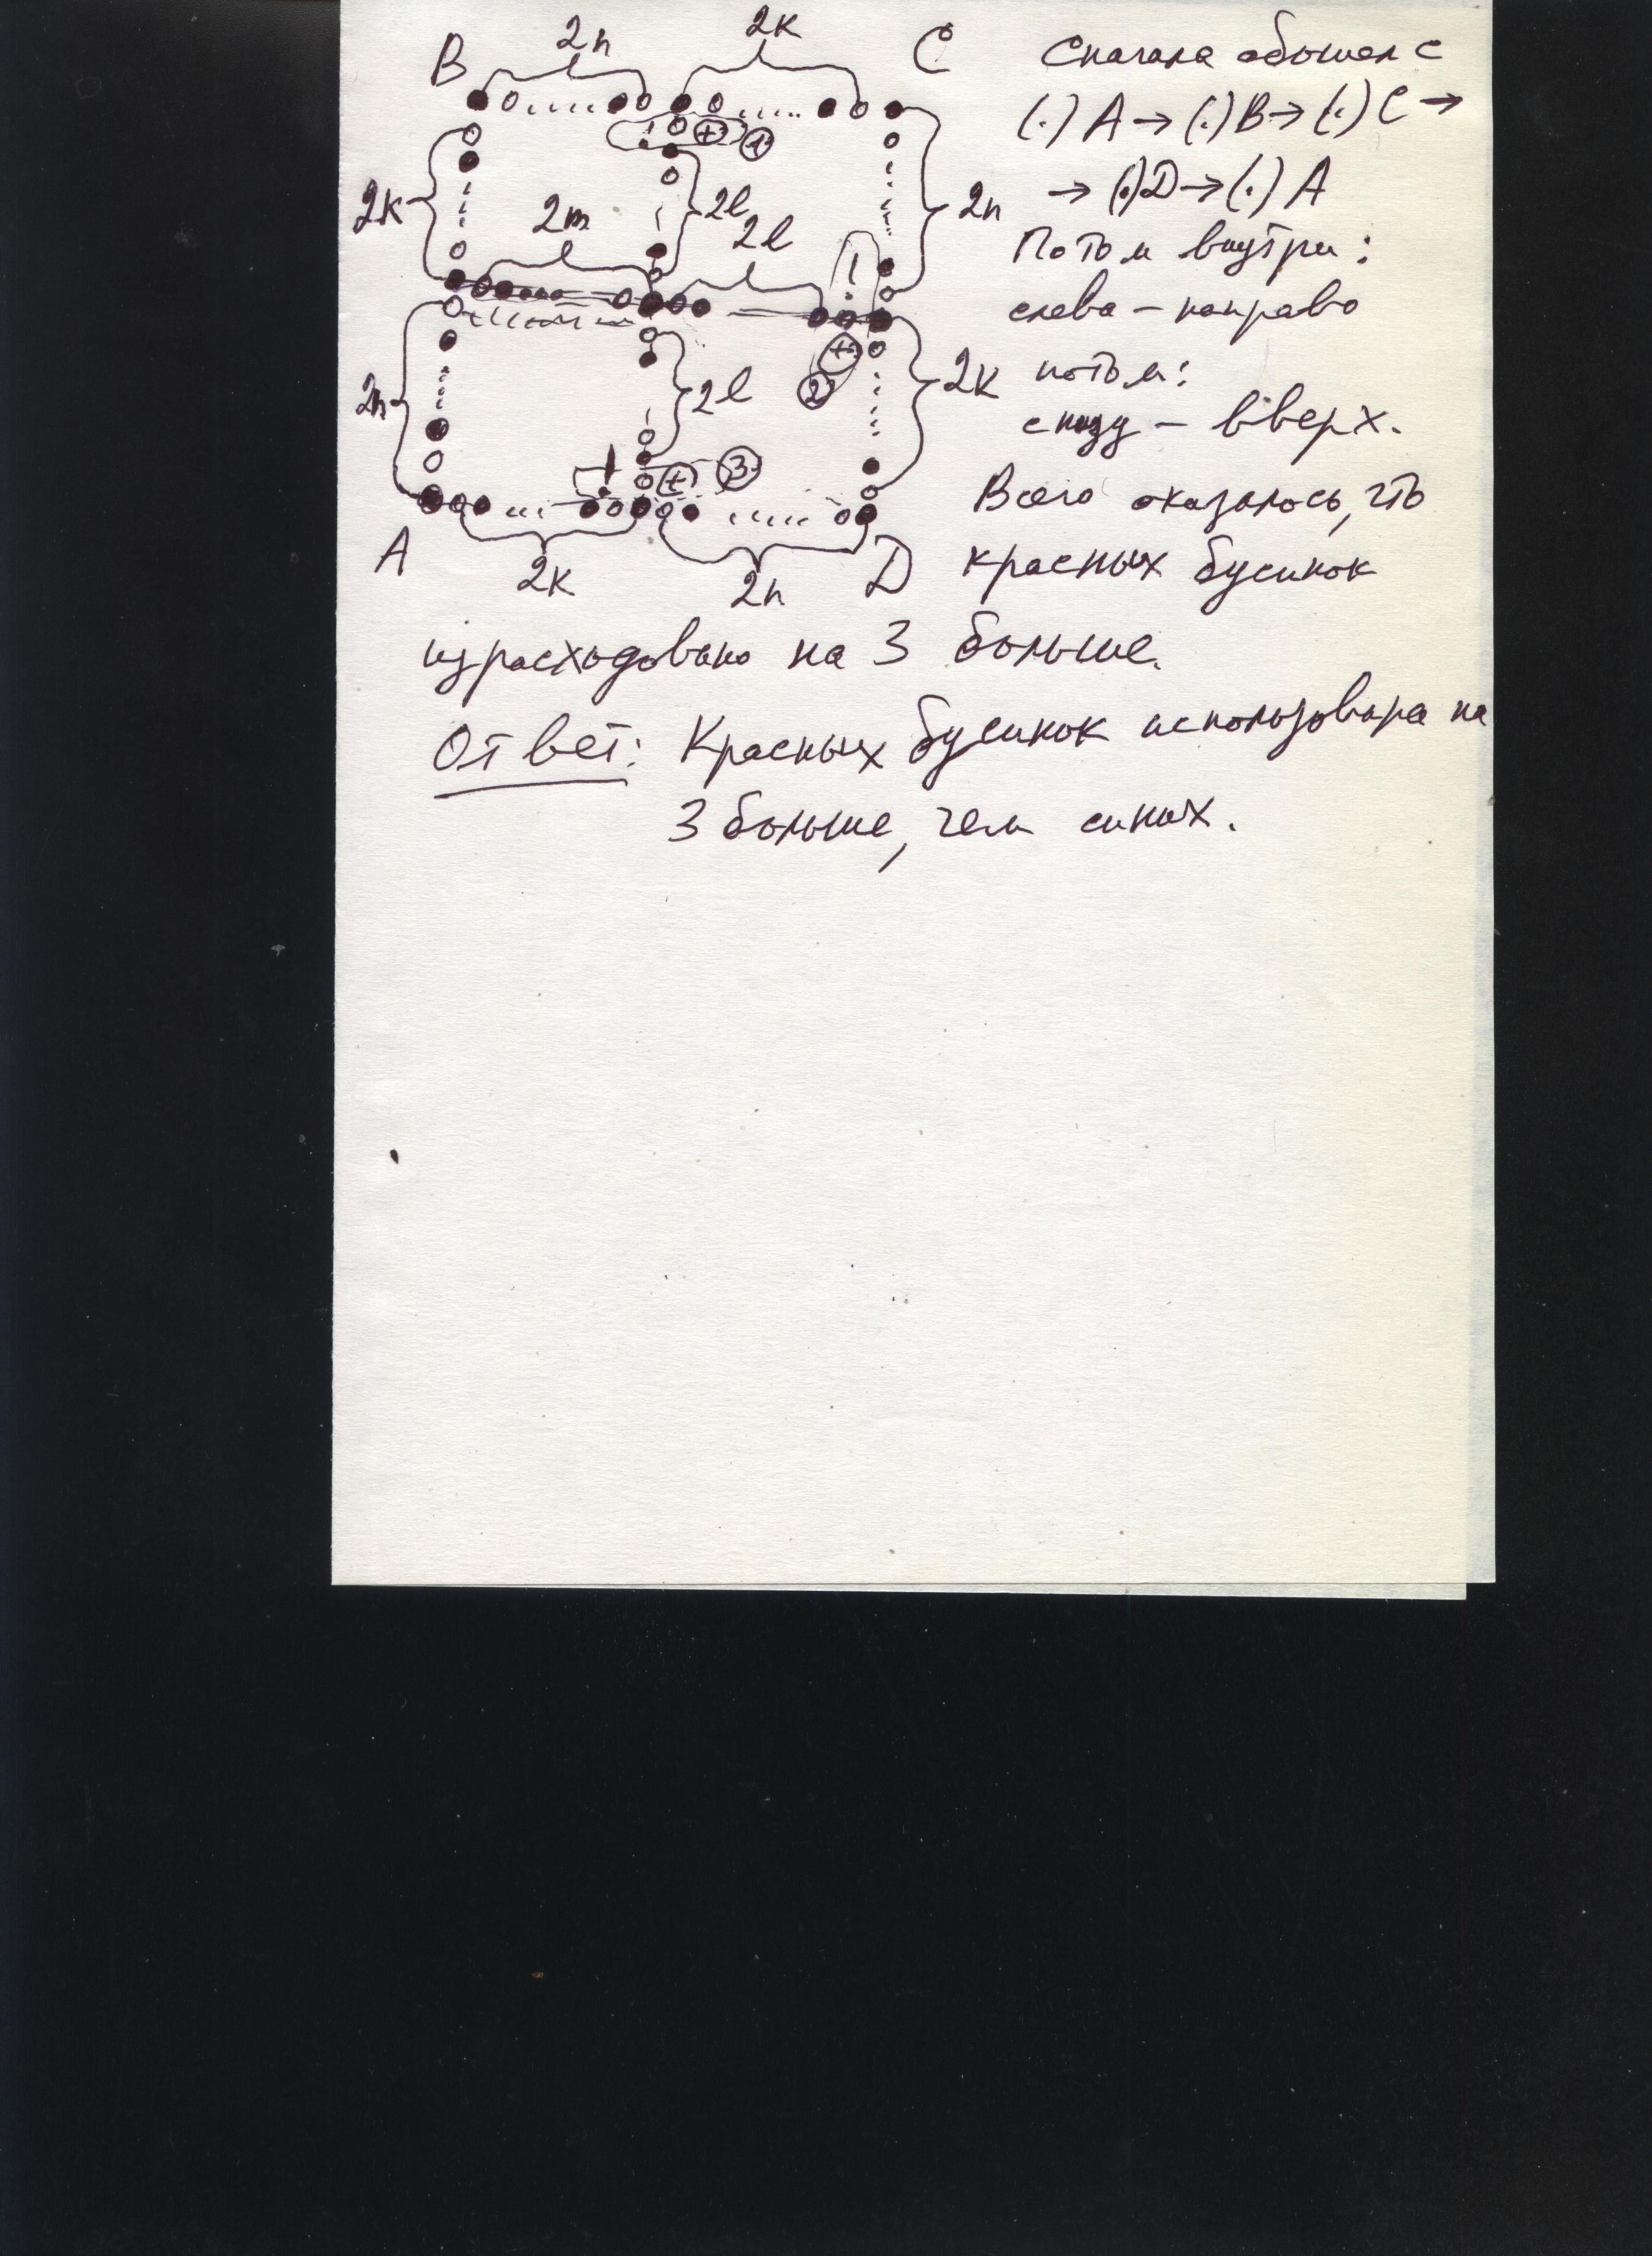 B 2n 2k C
Сначала обошел с
(.) A → (.) B → (.) C →
→ (.) D → (.) A
+ 1
2k 2m 2l 2l 2n
Потом внутри:
слева – направо
потом:
снизу – вверх.
2n 2l + 2 2k
+ 3
A 2k 2n D
Всего оказалось, что
красных бусинок
израсходовано на 3 больше.
Ответ: Красных бусинок использовара на
3 больше, чем синих.